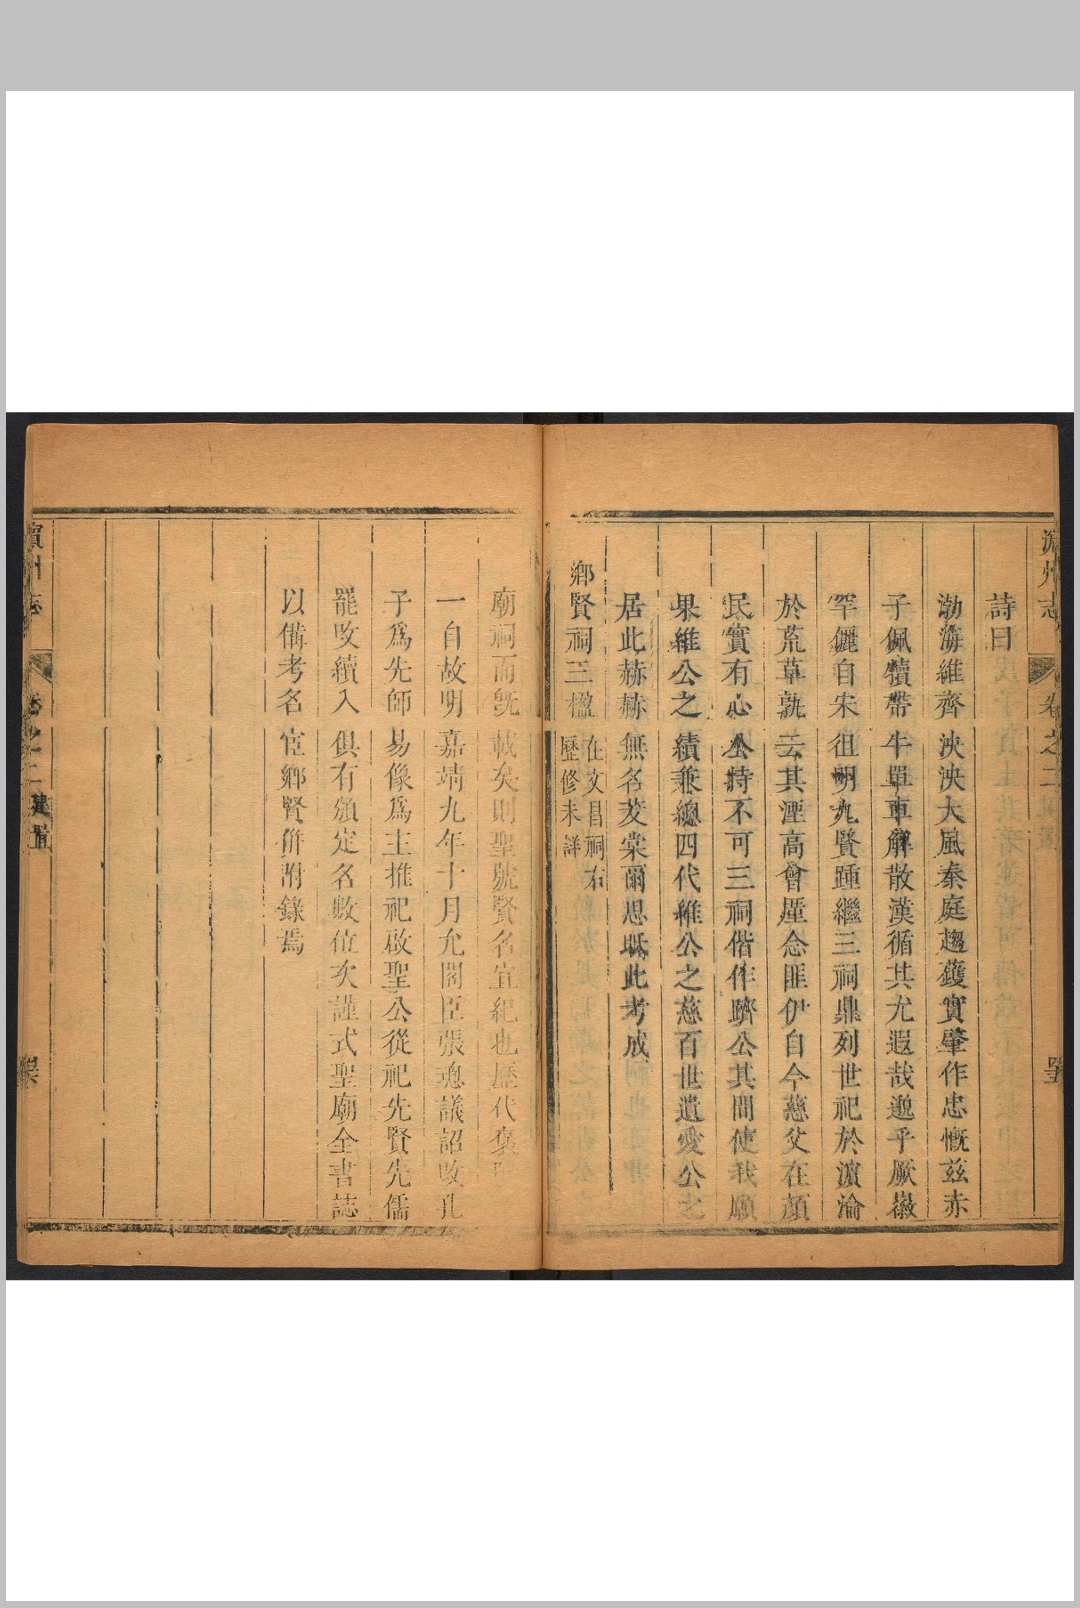 濱州志 卷之二
詩曰
渤海維齊泱泱大風秦庭趨蠖實肇作忠慨兹赤
子佩犢帶牛單車解散漢循其尤遐哉邈乎厥徽
罕儷自宋徂明九賢踵繼三祠鼎列世祀於濵淪
於荒草孰云其湮高會塵念匪伊自今慈父在顏
民實有心公特不可三祠偕作躋公其間使我願
果維公之績兼總四代維公之慈百世遺愛公之
居此赫赫無名茇棠爾思眂此考成
鄉賢祠三楹
在文昌祠右
歷修未詳
廟祠而旣載矣則聖號賢名宜紀也歷代褒
一自故明嘉靖九年十月允閣臣張璁議詔改孔
子爲先師易像爲主推祀啟聖公從祀先賢先儒
罷改續入俱有頒定名數位次謹式聖廟全書誌
以備考名宦鄉賢併附錄焉
濱州志 卷之二 建置